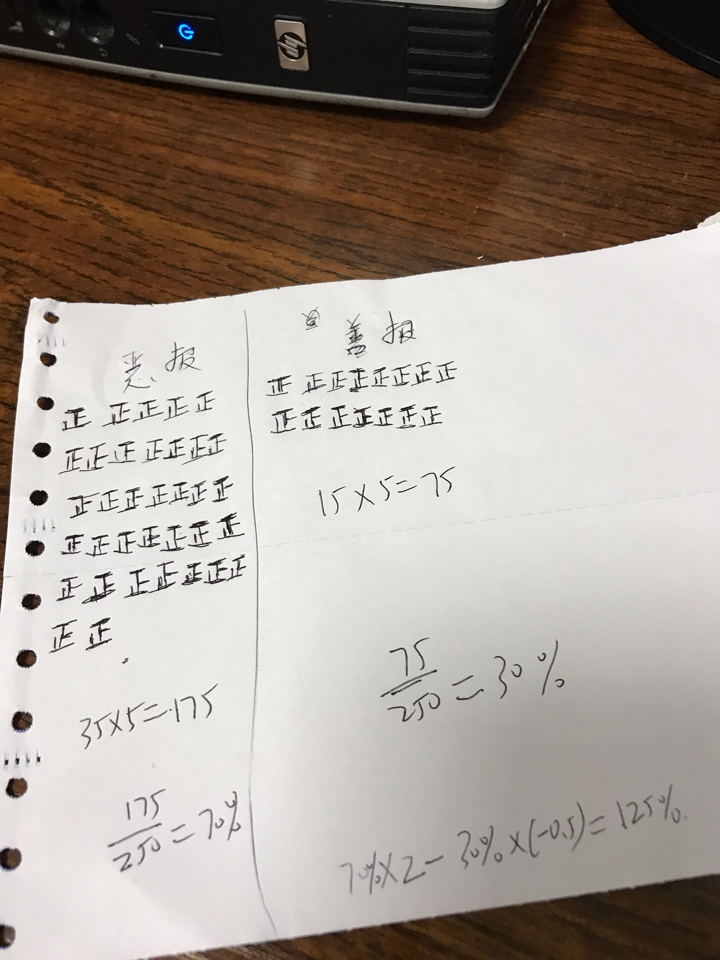 恶报
正 正正正正
正正正正正正正
正正正正正正正
正正正正正正正
正正正正正正正
正正
35×5=175
175/250=70%
善报
正 正正正正正正正
正正正正正正正
15×5=75
75/250=30%
70%×2-30%×(-0.5)=125%.